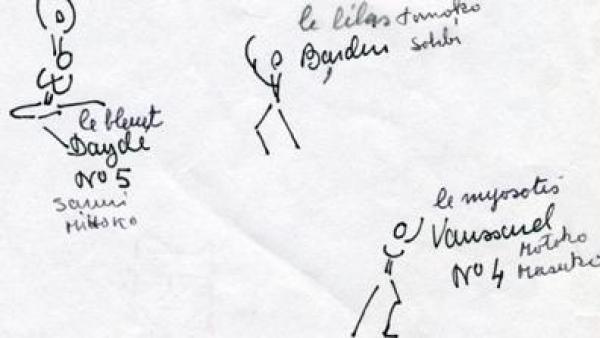 le lilas tomoko
Bardin Sohbi
le bleuet
Daydé
No 5
Sanmi
Mihoko
le myosotis
Vaussard
Motoko
No 4 Masuko